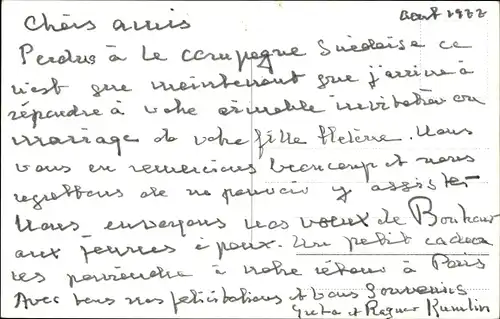 août 1972
Chers amis
Perdus à la campagne Suédoise ce
n'est que maintenant que j'arrive à
répondre à votre aimable invitation au
mariage de votre fille Hélène. Nous
vous en remercions beaucoup et nous
regrettons de ne pouvoir y assister
Nous envoyons nos voeux de Bonheur
aux jeunes époux. Un petit cadeau
les parviendra à notre retour à Paris
Avec tous nos félicitations et bons Souvenirs
Greta et Ragnar Kumlin